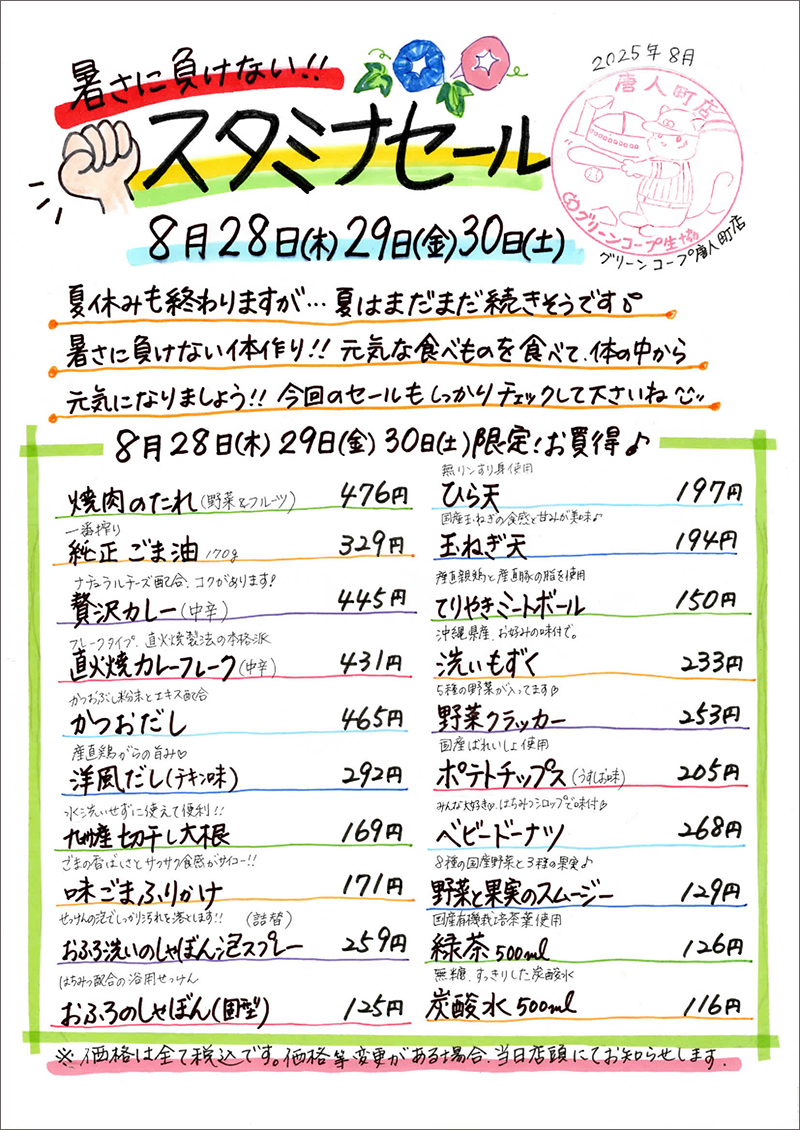 2025年8月
暑さに負けない!!
スタミナセール
唐人町店
グリーンコープ生協
グリーンコープ唐人町店
8月28日(木)29日(金)30日(土)
夏休みも終わりますが…夏はまだまだ続きそうです♪
暑さに負けない体作り!! 元気な食べものを食べて、体の中から
元気になりましょう!! 今回のセールもしっかりチェックして下さいね
8月28日(木)29日(金)30日(土)限定!お買得♪
焼肉のたれ(野菜&フルーツ) 476円
一番搾り
純正ごま油 170g 329円
ナチュラルチーズ配合、コクがあります!
贅沢カレー(中辛) 445円
フレークタイプ、直火焼製法の本格派
直火焼カレーフレーク(中辛) 431円
かつおぶし粉末とエキス配合
かつおだし 465円
産直鶏がらの旨み♡
洋風だし(チキン味) 292円
水洗いせずに使えて便利!!
九州産切干し大根 169円
ごまの香ばしさとサクサク食感がサイコー!!
味ごまふりかけ 171円
せっけんの泡でしっかり汚れを落とします!! (詰替)
おふろ洗いのしゃぼん泡スプレー 259円
はちみつ配合の浴用せっけん
おふろのしゃぼん(固型) 125円
無リンすり身使用
ひら天 197円
国産玉ねぎの食感と甘みが美味♪
玉ねぎ天 194円
産直親鶏と産直豚の脂を使用
てりやきミートボール 150円
沖縄県産、お好みの味付で。
洗いもずく 233円
5種の野菜が入ってます♡
野菜クラッカー 253円
国産ばれいしょ使用
ポテトチップス(うすしお味) 205円
みんな大好き♡はちみつシロップで味付♡
ベビードーナツ 268円
8種の国産野菜と3種の果実♪
野菜と果実のスムージー 129円
国産有機栽培茶葉使用
緑茶500ml 126円
無糖、すっきりした炭酸水
炭酸水500ml 116円
※価格は全て税込です。価格等変更がある場合、当日店頭にてお知らせします。